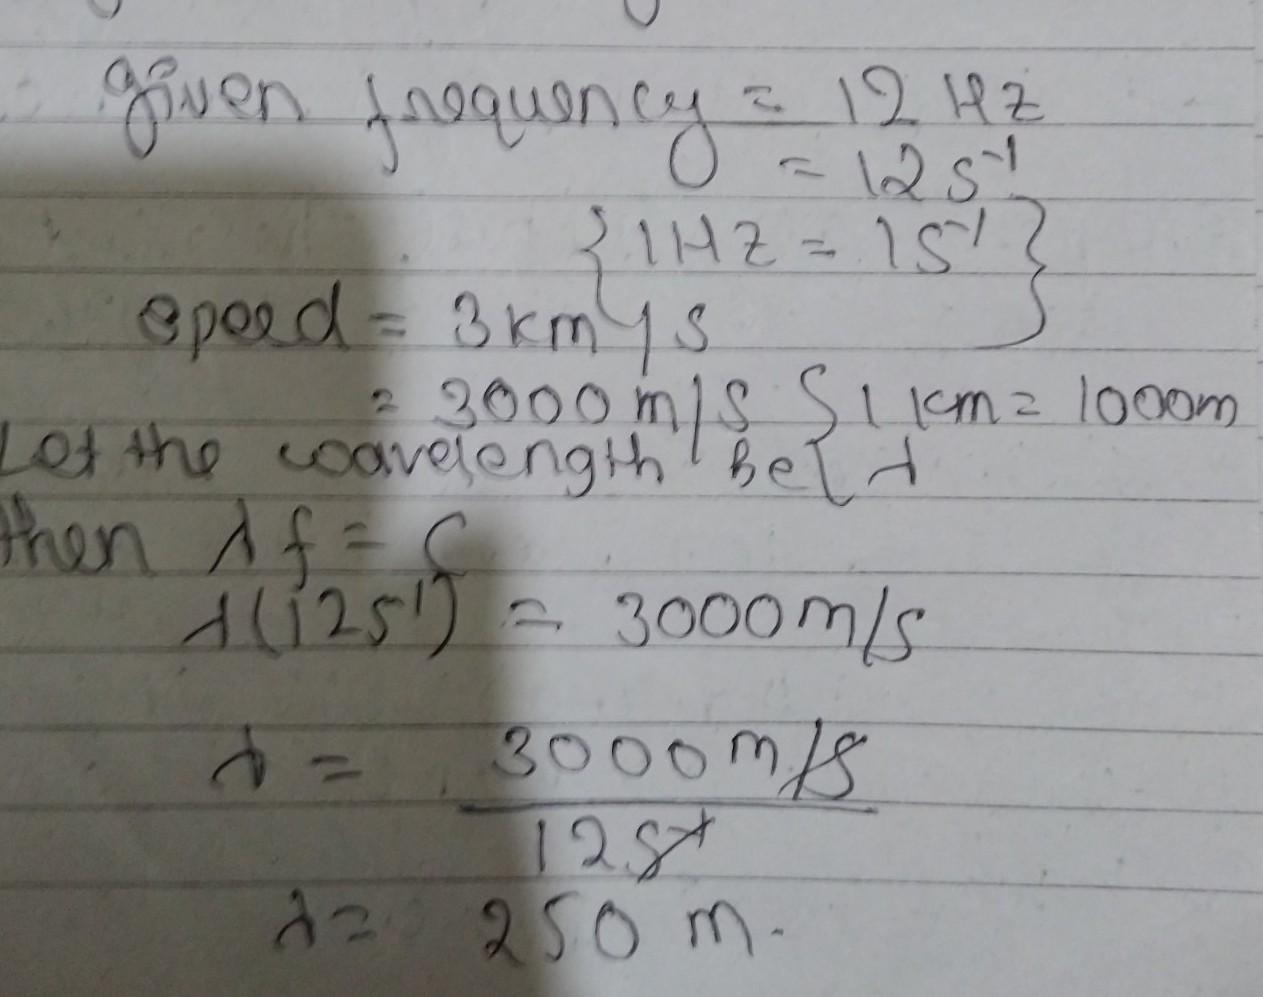 given frequency = 12 Hz
= 12 s⁻¹
{1Hz = 1s⁻¹}
speed = 3 km/s
= 3000 m/s {1 km = 1000m
Let the wavelength Be λ
then λ f = c
λ(12s⁻¹) = 3000m/s
λ = 3000 m/s
12 s⁻¹
λ = 250 m.